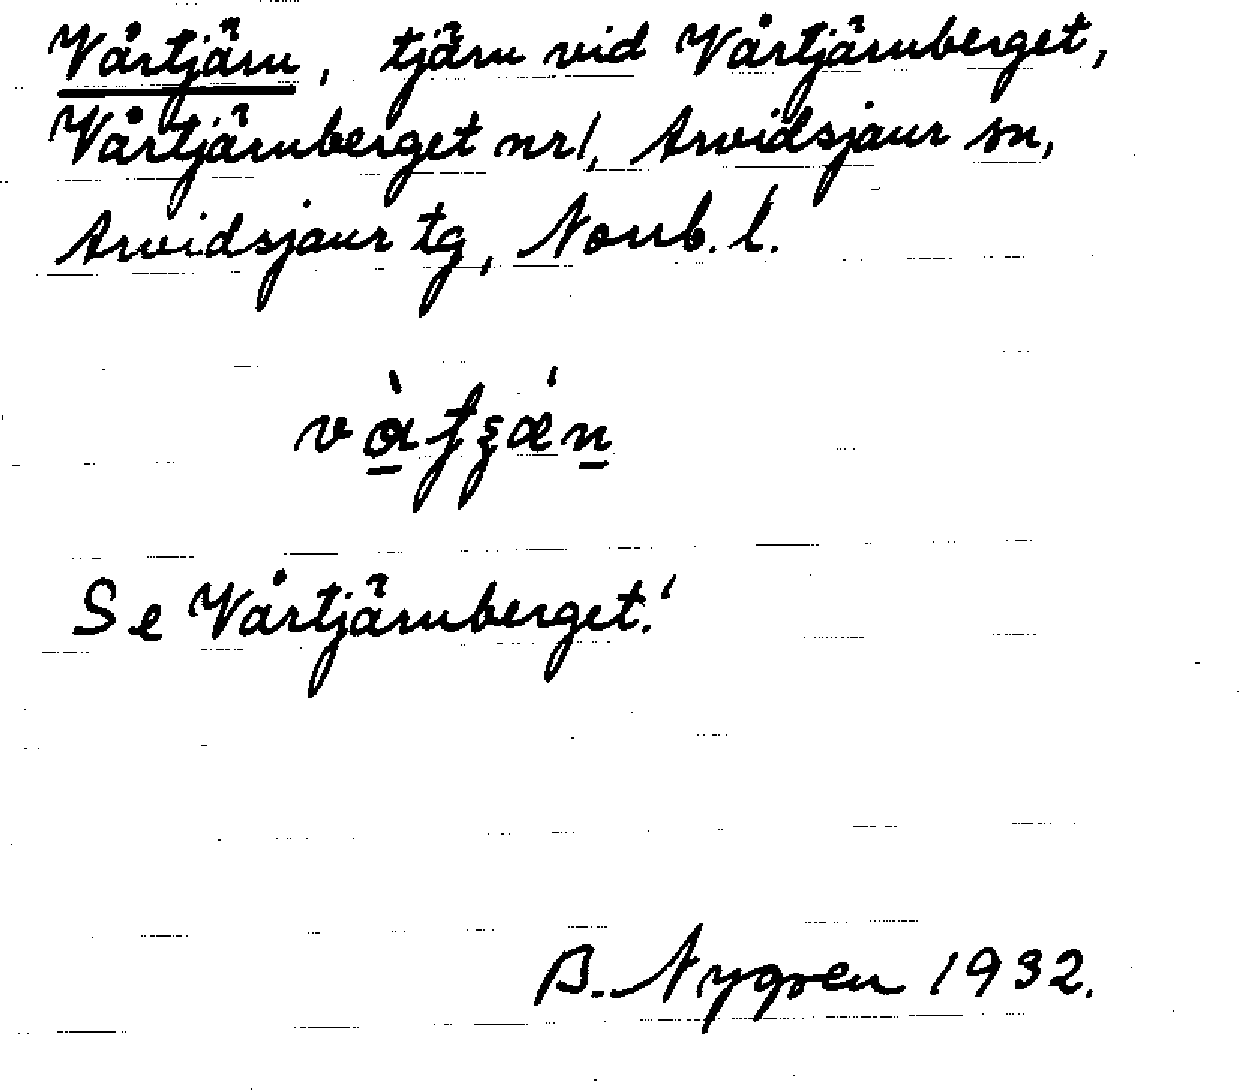 Vårtjärn, tjärn vid Vårtjärnberget,
Vårtjärnberget nr 1, Arvidsjaur sn,
Arvidsjaur tg, Norrb. l.
Se Vårtjärnberget!
B. Nygren 1932.